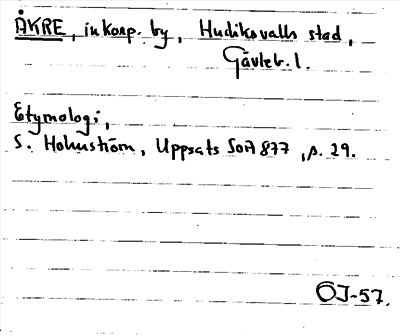 ÅKRE, inkorp. by, Hudiksvalls stad,
Gävleb. l.
Etymologi,
S. Holmström, Uppsats SoA 877, s. 29.
OJ-57.